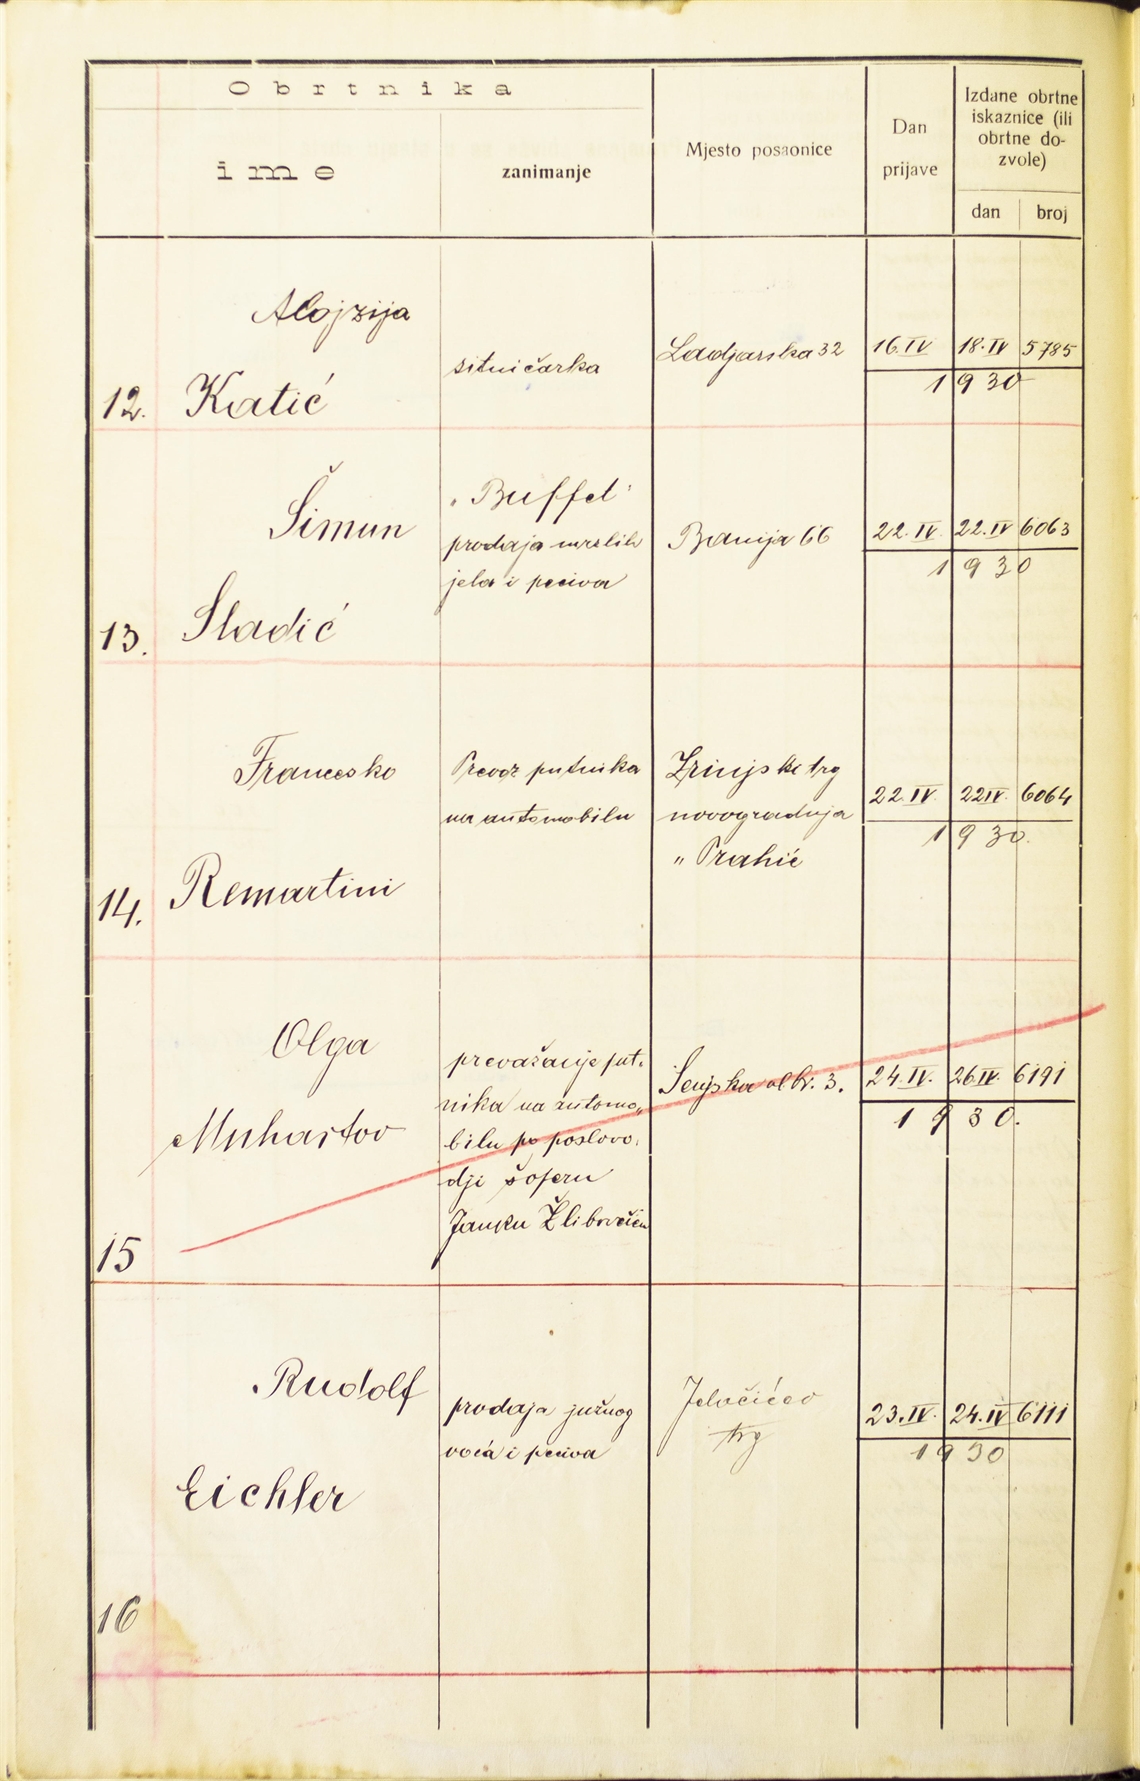 Obrtnika
ime
zanimanje
Mjesto posaonice
Dan
prijave
Izdane obrtne
iskaznice (ili
obrtne do-
zvole)
dan broj
12.
Alojzija
Katić
sitničarka
Ladjarska 32
16.IV 18.IV 5785
1930
13.
Šimun
Sladić
„Buffet"
prodaja mrzlih
jela i peciva
Banija 66
22.IV. 22.IV 6063
1930
14.
Francesko
Remartini
Prevoz putnika
na automobilu
Zrinjski trg
novogradnja
„Prahić
22.IV. 22IV. 6064
1930.
15
Olga
Muhartov
prevažanje put-
nika na automo-
bilu po poslovo-
dji šoferu
Janku
Senjska br. 3.
24.IV. 26IV. 6191
1930.
16
Rudolf
Eichler
prodaja južnog
voća i peciva
Jelačićev
trg
23.IV. 24.IV 6111
1930